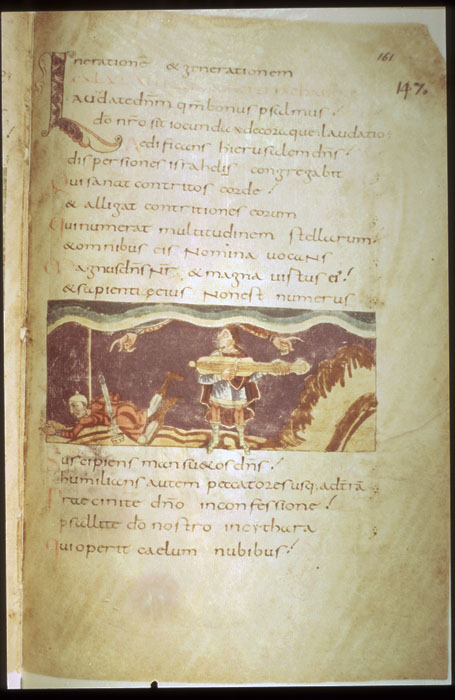 161
147.
neratione & generationem
Laudate dn̄m qm̄ bonus psalmus
dō nr̄o sit iocunda & decoraque laudatio
Aedificans hierusalem dn̄s
dispersiones israhelis congregabit
Qui sanat contritos corde
& alligat contritiones eorum
Qui numerat multitudinem stellarum
& omnibus eis Nomina uocans
Magnus dn̄s Nr̄ & magna uirtus ei'
& sapientię eius Non est numerus
Suscipiens mansu&os dn̄s
humilians autem peccatores usq. ad tr̄a
Praecinite dn̄o in confessione
psallite dō nostro in cythara
Qui operit caelum nubibus